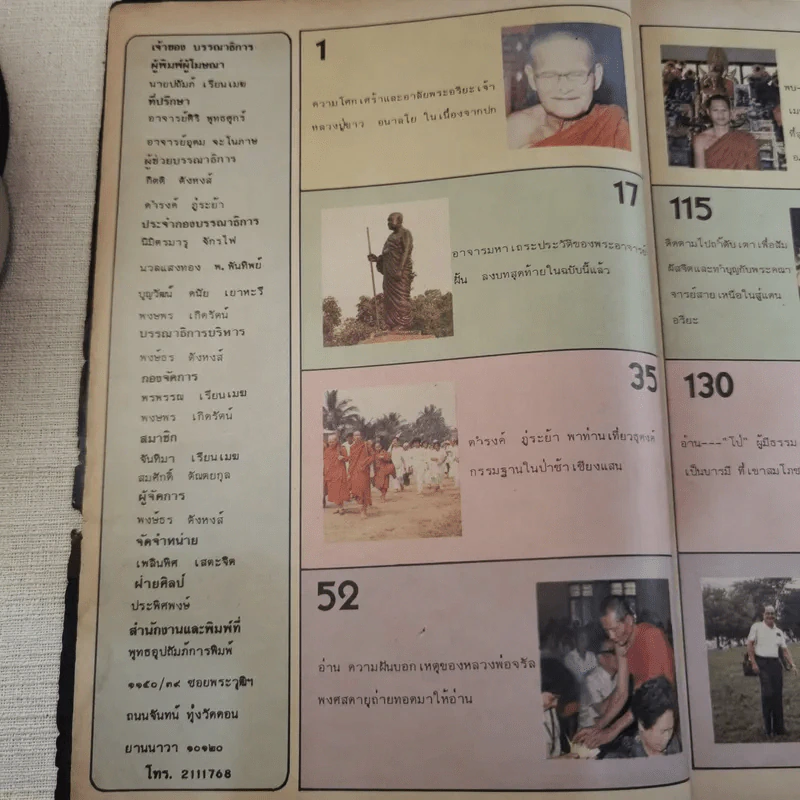 เจ้าของ บรรณาธิการ
ผู้พิมพ์ผู้โฆษณา
นายปถัมภ์ เรียนเมฆ
ที่ปรึกษา
อาจารย์ศิริ พุทธศุกร์
อาจารย์อุดม จะโนภาษ
ผู้ช่วยบรรณาธิการ
กิตติ ตังหงส์
ดำรงค์ ภู่ระย้า
ประจำกองบรรณาธิการ
นิมิตรมารู จักรไฟ
นวลแสงทอง พ.พันทิพย์
บุญวัฒน์ ดนัย เยาหะรี
พงษพร เกิดวัฒน์
บรรณาธิการบริหาร
พงษ์ธร ตังหงส์
กองจัดการ
พรพรรณ เรียนเมฆ
พงษพร เกิดวัฒน์
สมาชิก
จันทิมา เรียนเมฆ
สมศักดิ์ ตัณตยกุล
ผู้จัดการ
พงษ์ธร ตังหงส์
จัดจำหน่าย
เพลินพิศ เสตะจิต
ฝ่ายศิลป์
ประพิศพงษ์
สำนักงานและพิมพ์ที่
พุทธอุปถัมภ์การพิมพ์
๑๑๕๐/๓๙ ซอยพระวุฒิฯ
ถนนจันทน์ ทุ่งวัดดอน
ยานนาวา ๑๐๑๒๐
โทร. 2111768
1
ความโศกเศร้าและอาลัยพระอริยะเจ้า
หลวงปู่ขาว อนาลโย ในเนื่องจากปก
17
อาจารมหาเถระประวัติของพระอาจารย์
ฝั้น ลงบทสุดท้ายในฉบับนี้แล้ว
35
ดำรงค์ ภู่ระย้า พาท่านเที่ยวธุดงค์
กรรมฐานในป่าช้าเชียงแสน
52
อ่าน ความฝันบอกเหตุของหลวงพ่อจรัล
พงศสดายุถ่ายทอดมาให้อ่าน
115
ติดตามไปถ้ำตับเตาเพื่อสัม
ผัสจิตและทำบุญกับพระคณา
จารย์สายเหนือในสู่แดน
อริยะ
130
อ่าน---"โป๋" ผู้มีธรรม
เป็นบารมี ที่เขาสมโภช